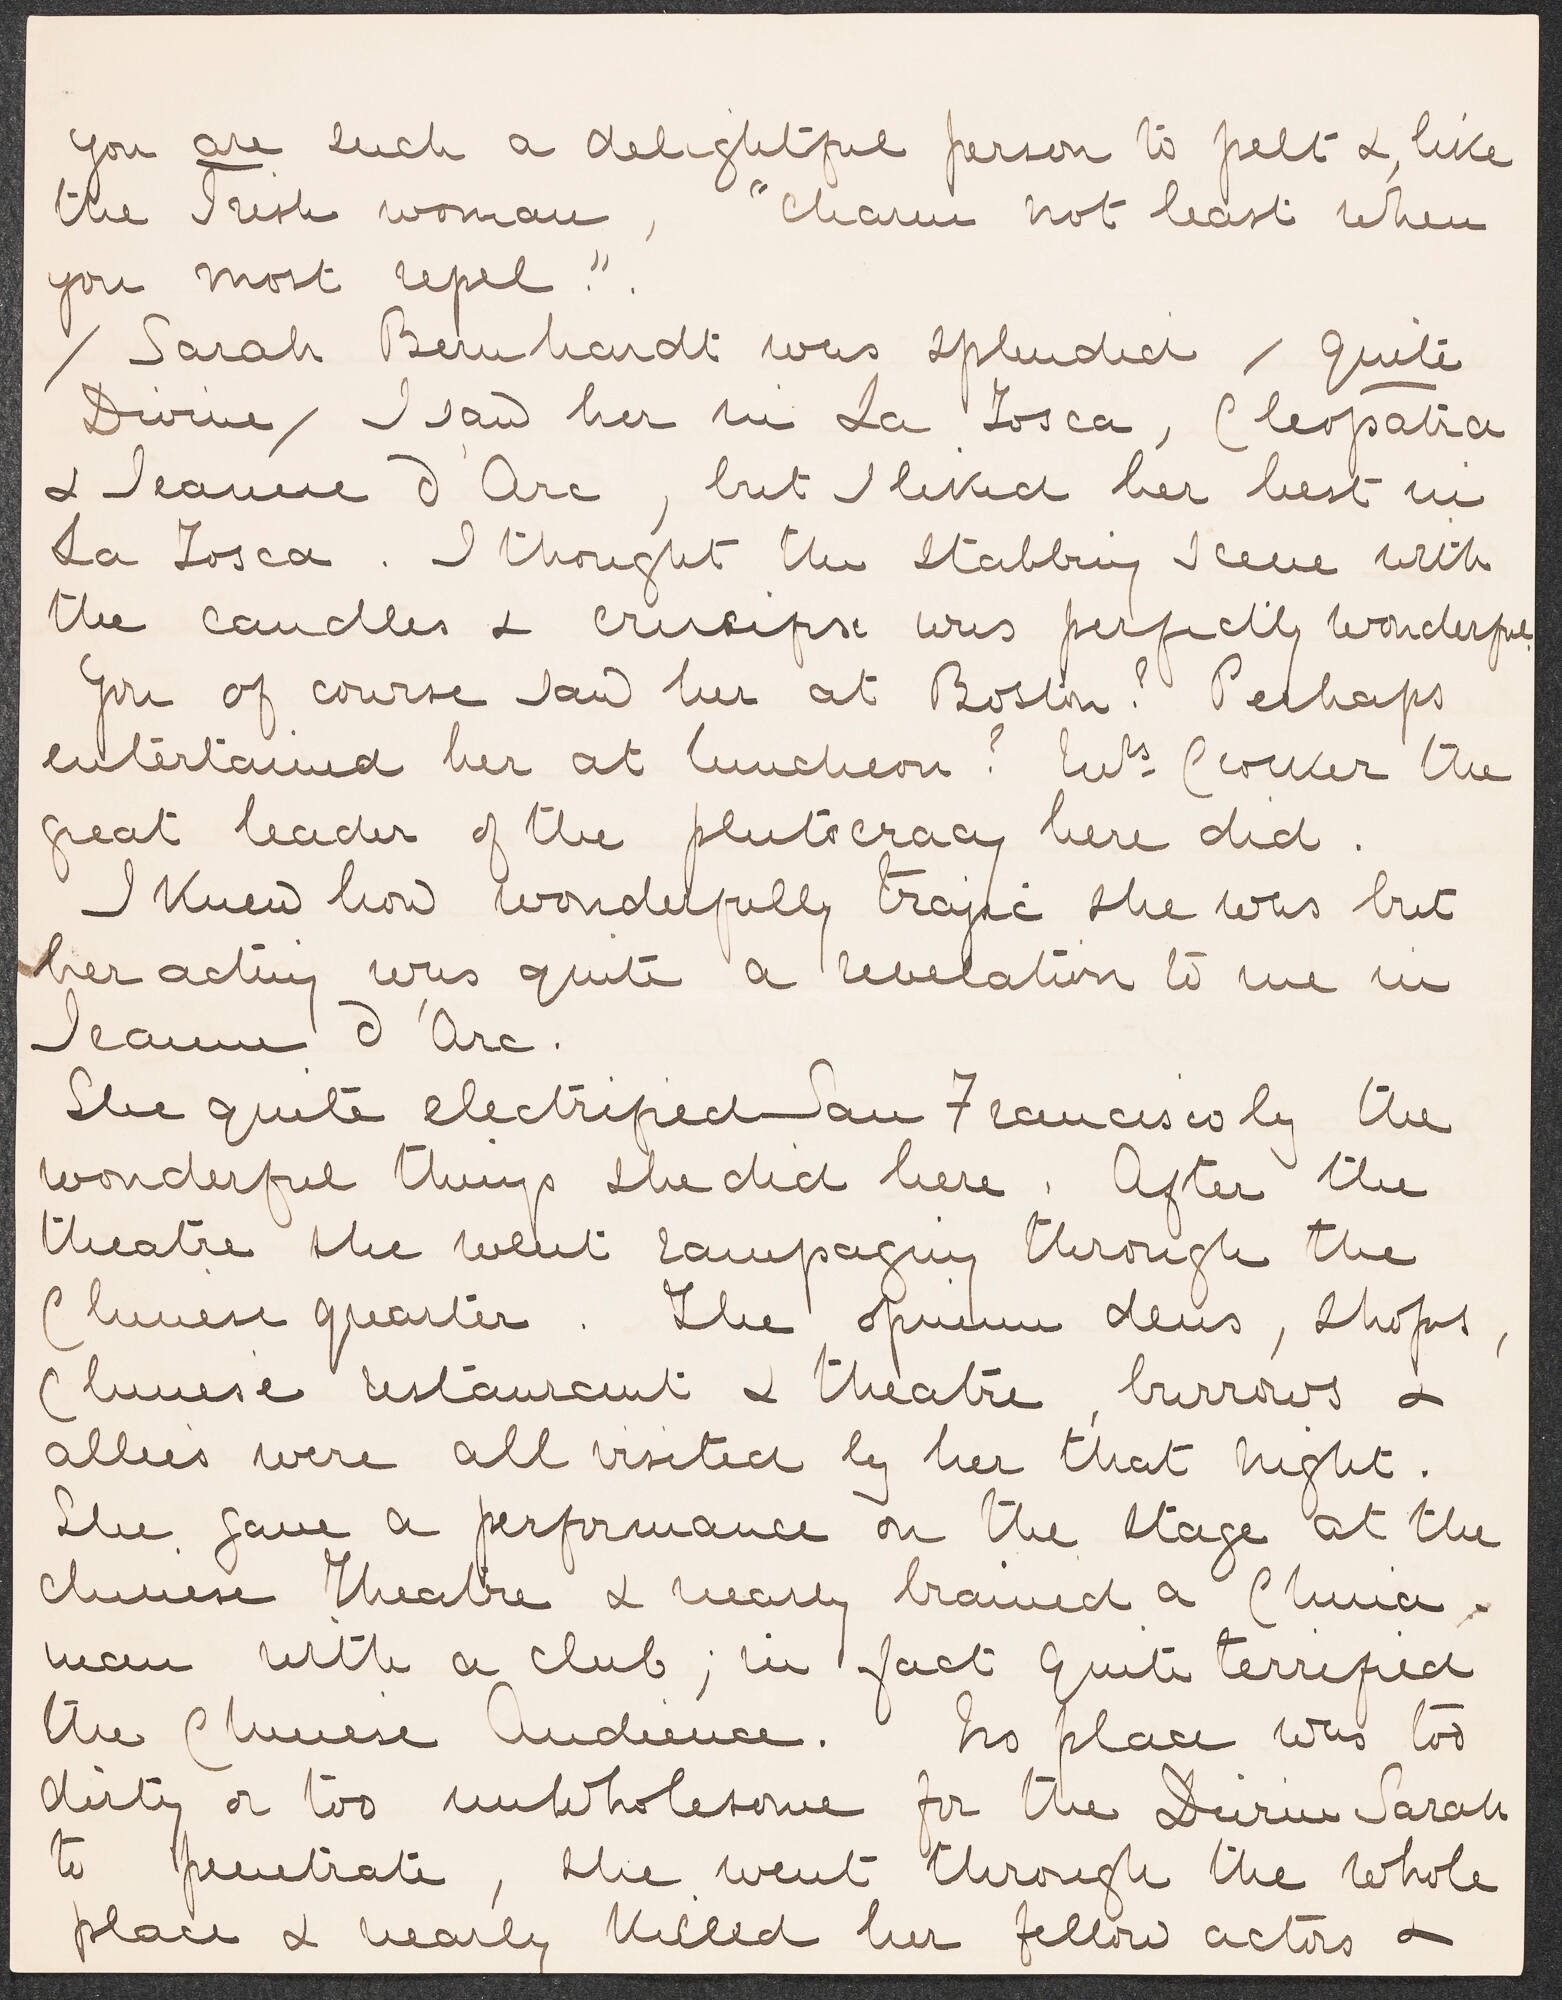 you are such a delightful person to pelt &, like
the Irish woman, "charm not least when
you most repel".
/ Sarah Bernhardt was splendid / quite
Divine / I saw her in La Tosca, Cleopatra
& Jeanne d'Arc, but I liked her best in
La Tosca. I thought the stabbing scene with
the candles & crucifix was perfectly wonderful.
You of course saw her at Boston? Perhaps
entertained her at luncheon? Mrs Crocker the
great leader of the plutocracy here did.
I knew how wonderfully trajic she was but
her acting was quite a revelation to me in
Jeanne d'Arc.
She quite electrified San Francisco by the
wonderful things she did here. After the
theatre she went rampaging through the
Chinese quarter. The opium dens, shops,
Chinese restaurant & theatre, burrows &
allies were all visited by her that night.
She gave a performance on the stage at the
chinese Theatre & nearly brained a China-
man with a club; in fact quite terrified
the Chinese Audience. No place was too
dirty or too unwholesome for the Divine Sarah
to penetrate, she went through the whole
place & nearly killed her fellow actors &